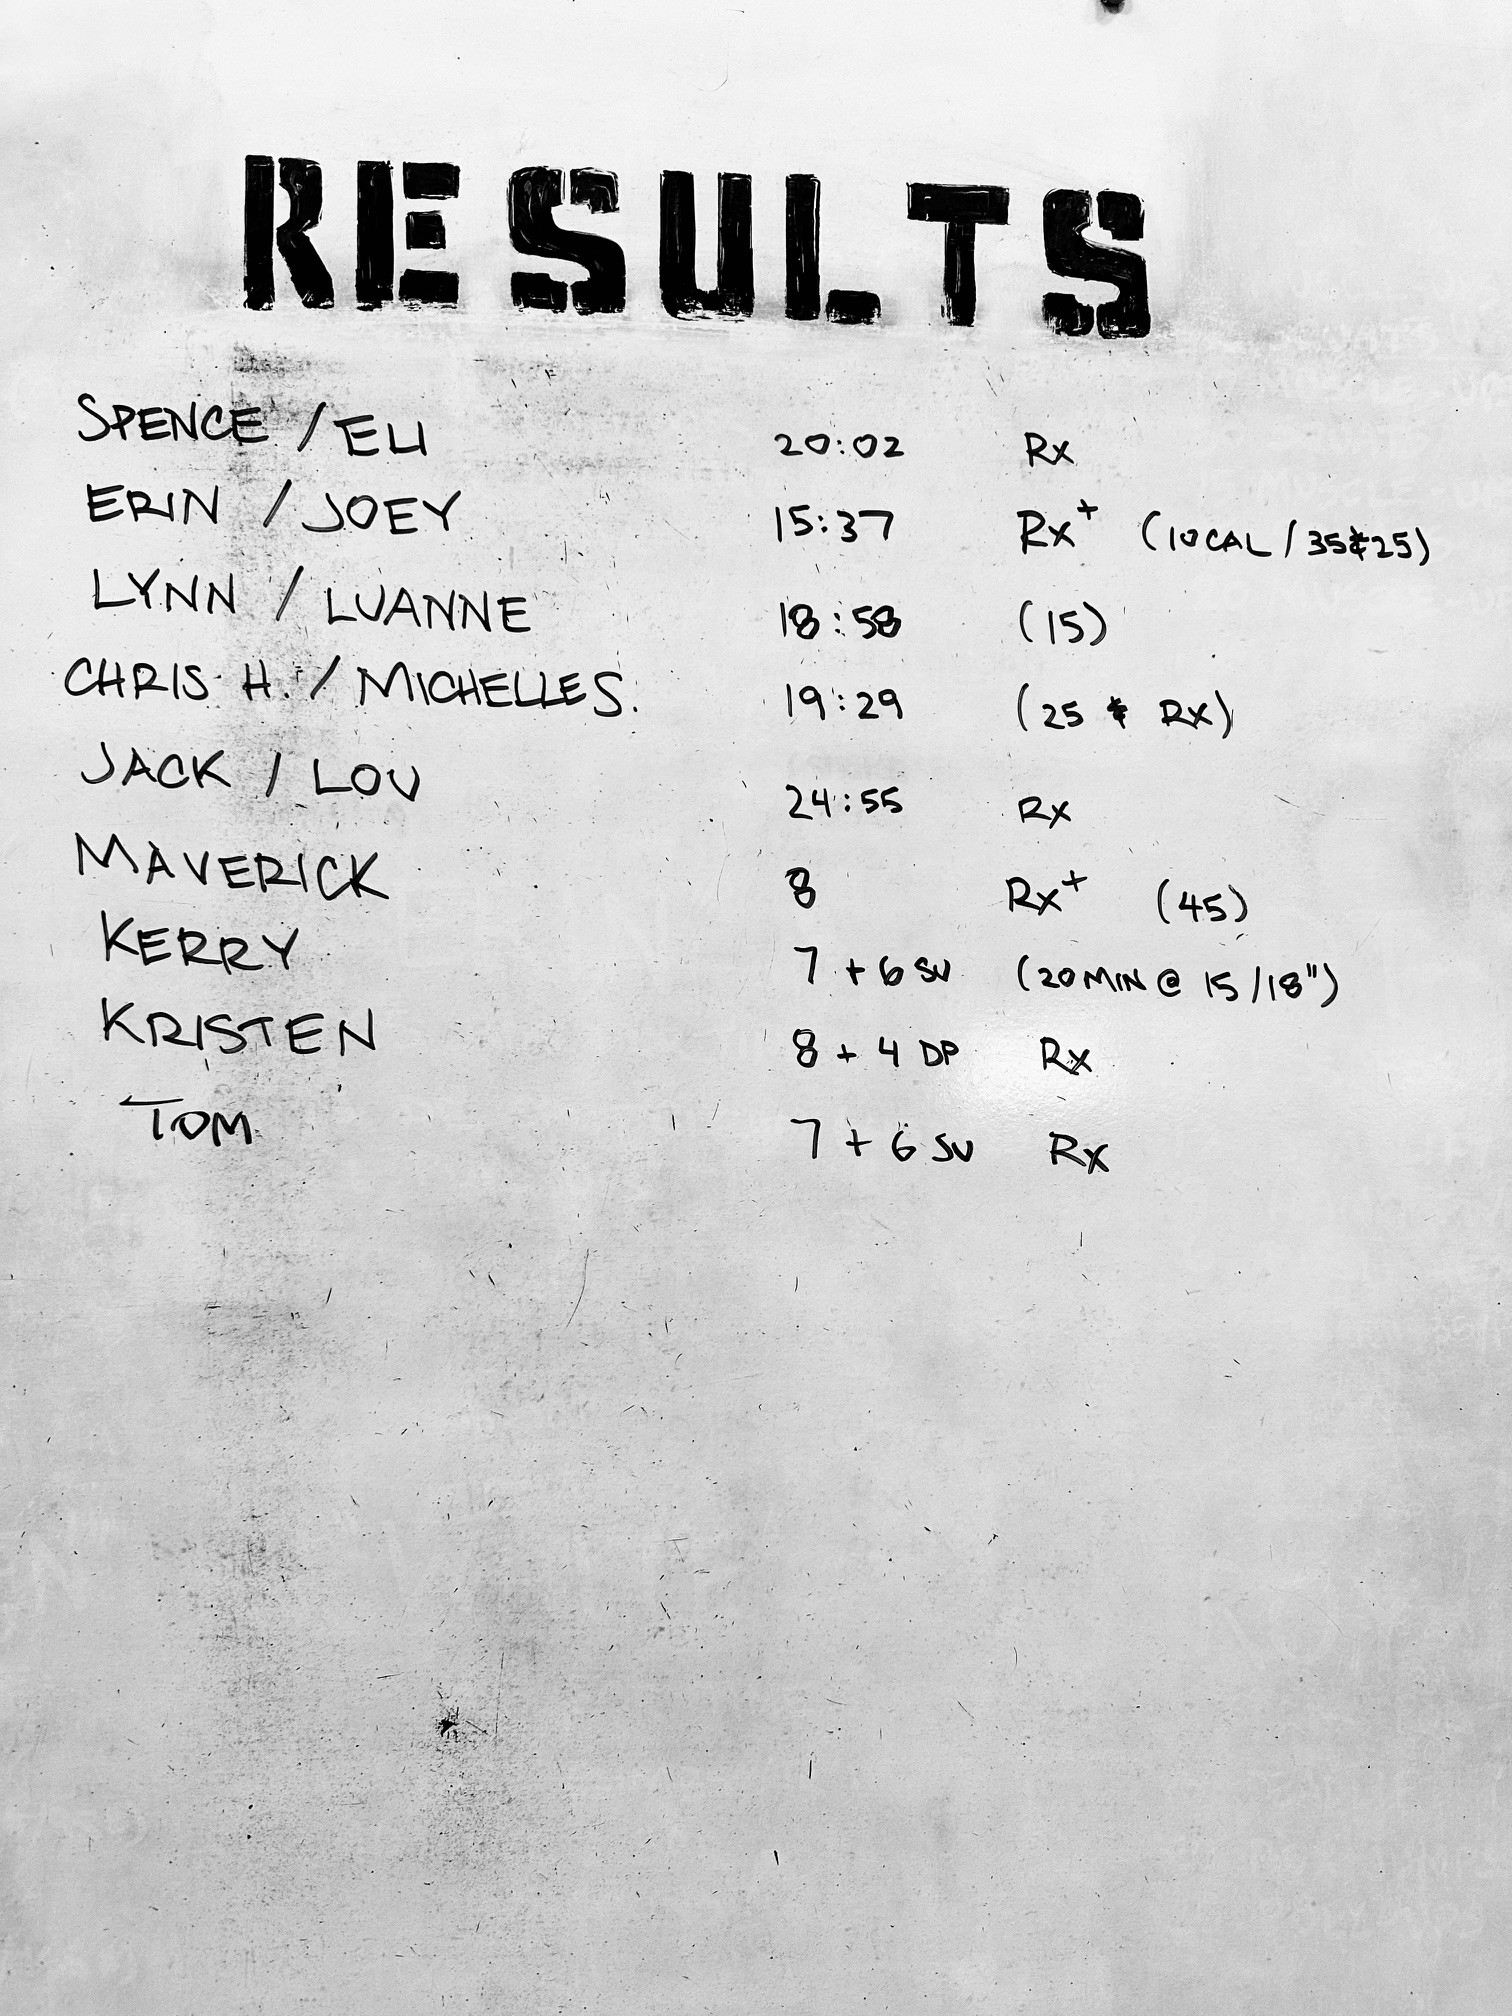 RESULTS
SPENCE / ELI 20:02 Rx
ERIN / JOEY 15:37 Rx+ (10CAL / 35&25)
LYNN / LUANNE 18:58 (15)
CHRIS H. / MICHELLE S. 19:29 (25 & RX)
JACK / LOU 24:55 Rx
MAVERICK 8 Rx+ (45)
KERRY 7 + 6 SU (20 MIN @ 15/18")
KRISTEN 8 + 4 DP Rx
TOM 7 + 6 SU Rx